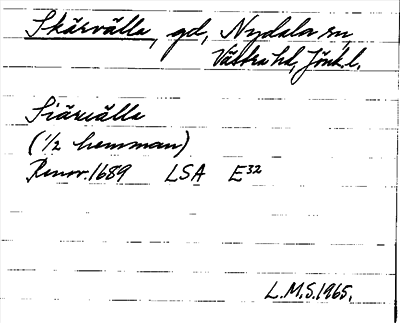 Skärvälla, gd, Nydala sn,
Västra hd, Jönk. l.
Siäriälla
(1/2 hemman)
Renov. 1689 LSA E32
L.M.S. 1965.